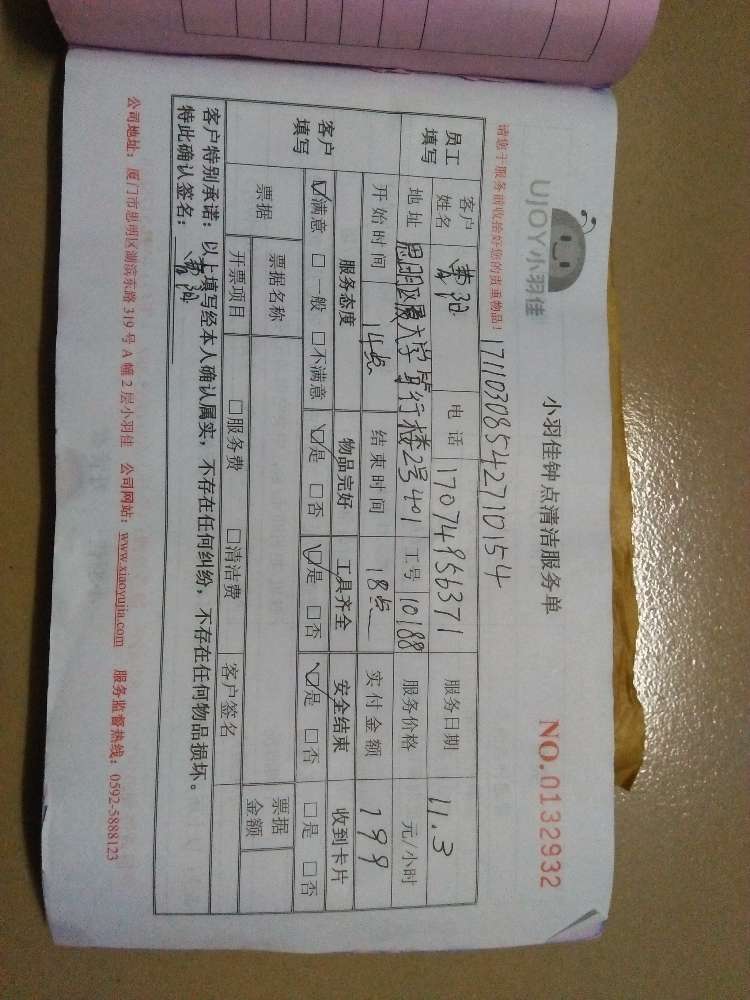 UJOY小羽佳
小羽佳钟点清洁服务单
NO.0132932
请您于服务前收拾好您的贵重物品！
17110308542710154
员工填写 客户姓名 电话 17074956371 服务日期 11.3
地址 思明区厦大学笃行楼2号401 工号 10188 服务价格 元/小时
开始时间 14点 结束时间 18点 实付金额 199
客户填写 服务态度 物品完好 工具齐全 安全结束 收到卡片
☑满意 □一般 □不满意 ☑是 □否 ☑是 □否 ☑是 □否 □是 □否
票据 票据名称 □服务费 □清洁费 票据金额
开票项目 客户签名
客户特别承诺：以上填写经本人确认属实，不存在任何纠纷，不存在任何物品损坏。
特此确认签名：
公司地址：厦门市思明区湖滨东路 319 号 A 幢 2 层小羽佳 公司网站：www.xiaoyujia.com 服务监督热线：0592-5888123